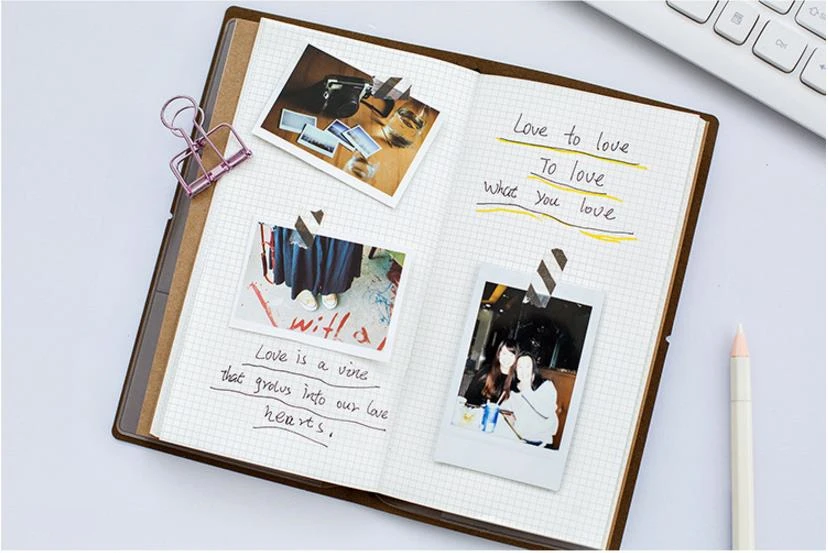 Love is a vine
that grows into our love
hearts.
with a
Love to love
To love
What you love
Ctrl